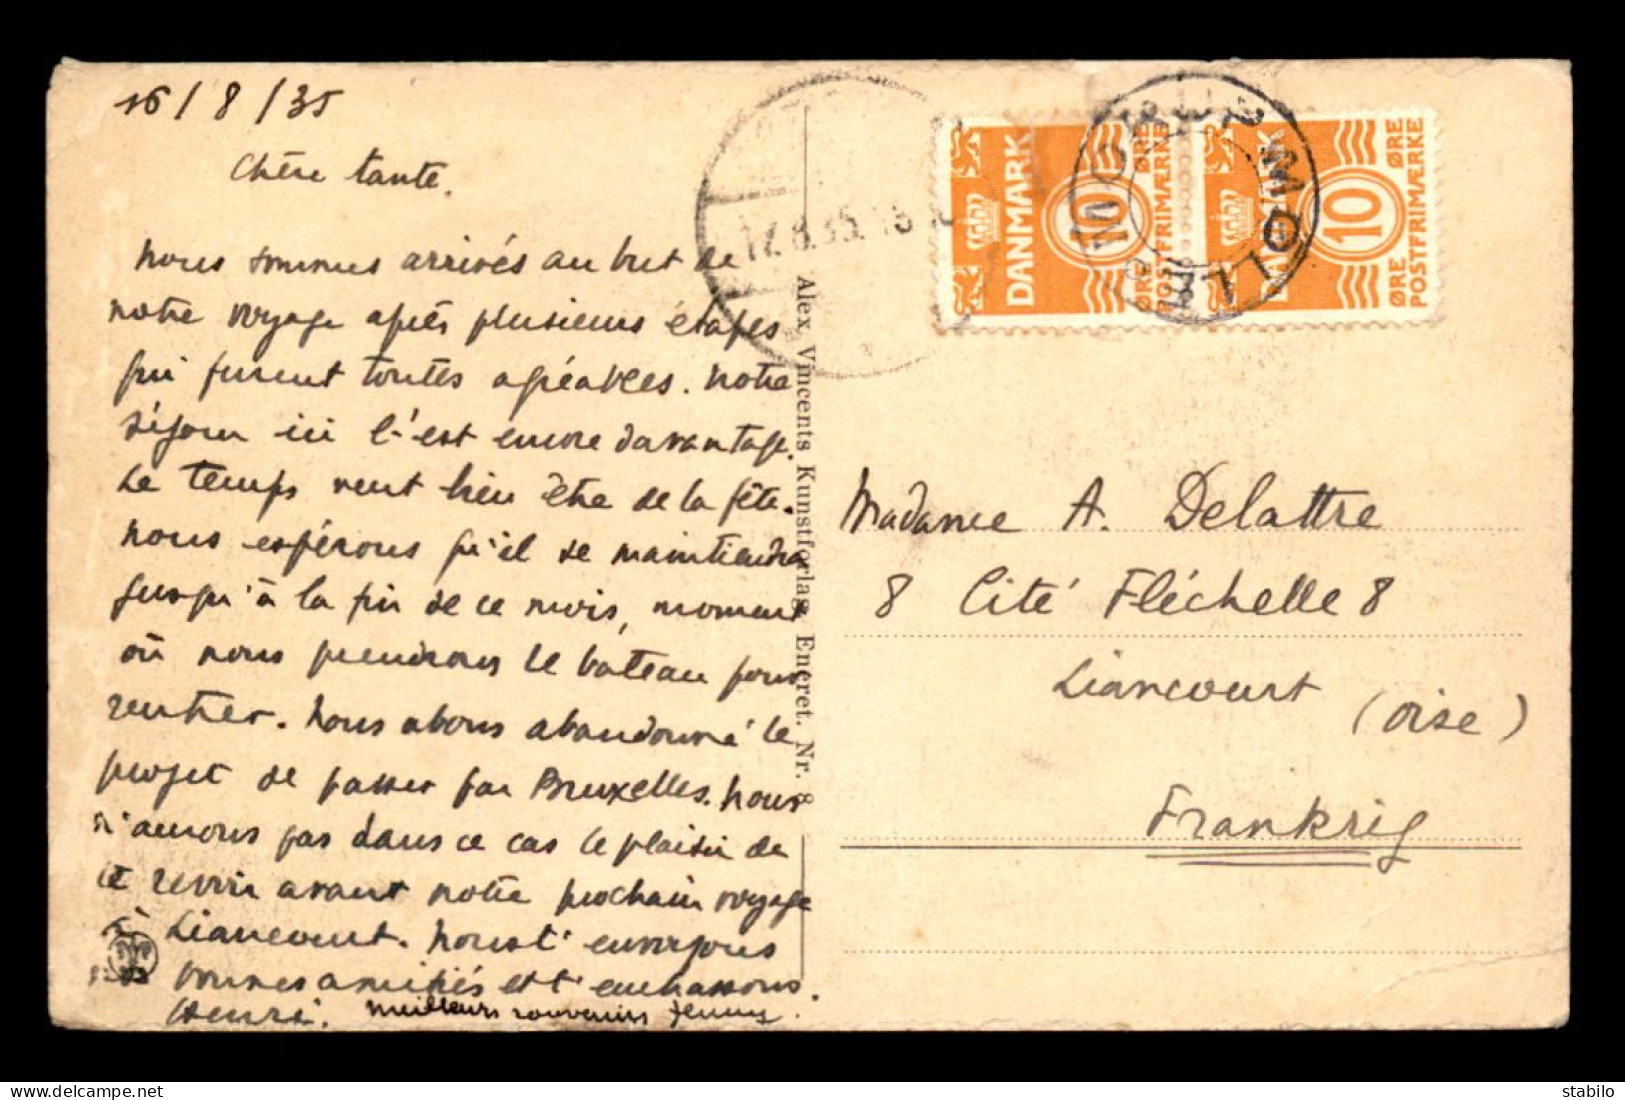 16/8/35
Chère tante.
nous sommes arrivés au but de
notre voyage après plusieurs étapes
qui furent toutes agréables. notre
séjour ici l'est encore davantage.
Le temps veut bien être de la fête.
nous espérons qu'il se maintiendra
jusqu'à la fin de ce mois, moment
où nous prendrons le bateau pour
rentrer. nous avons abandonné le
projet de passer par Bruxelles. nous
n'aurons pas dans ce cas le plaisir de
te revoir avant notre prochain voyage
à Liancourt. nous t'envoyons
bonnes amitiés et t'embrassons.
Henri. meilleurs souvenirs Jenny.
Alex. Vincents Kunstforlag, Eneret. Nr. 8
17.8.35.16
DANMARK
10
ØRE
POSTFRIMÆRKE
ØRE
DANMARK
10
ØRE
POSTFRIMÆRKE
ØRE
MØLLE
Madame A. Delattre
8 Cité Fléchelle 8
Liancourt
(Oise)
Frankrig
stabilo